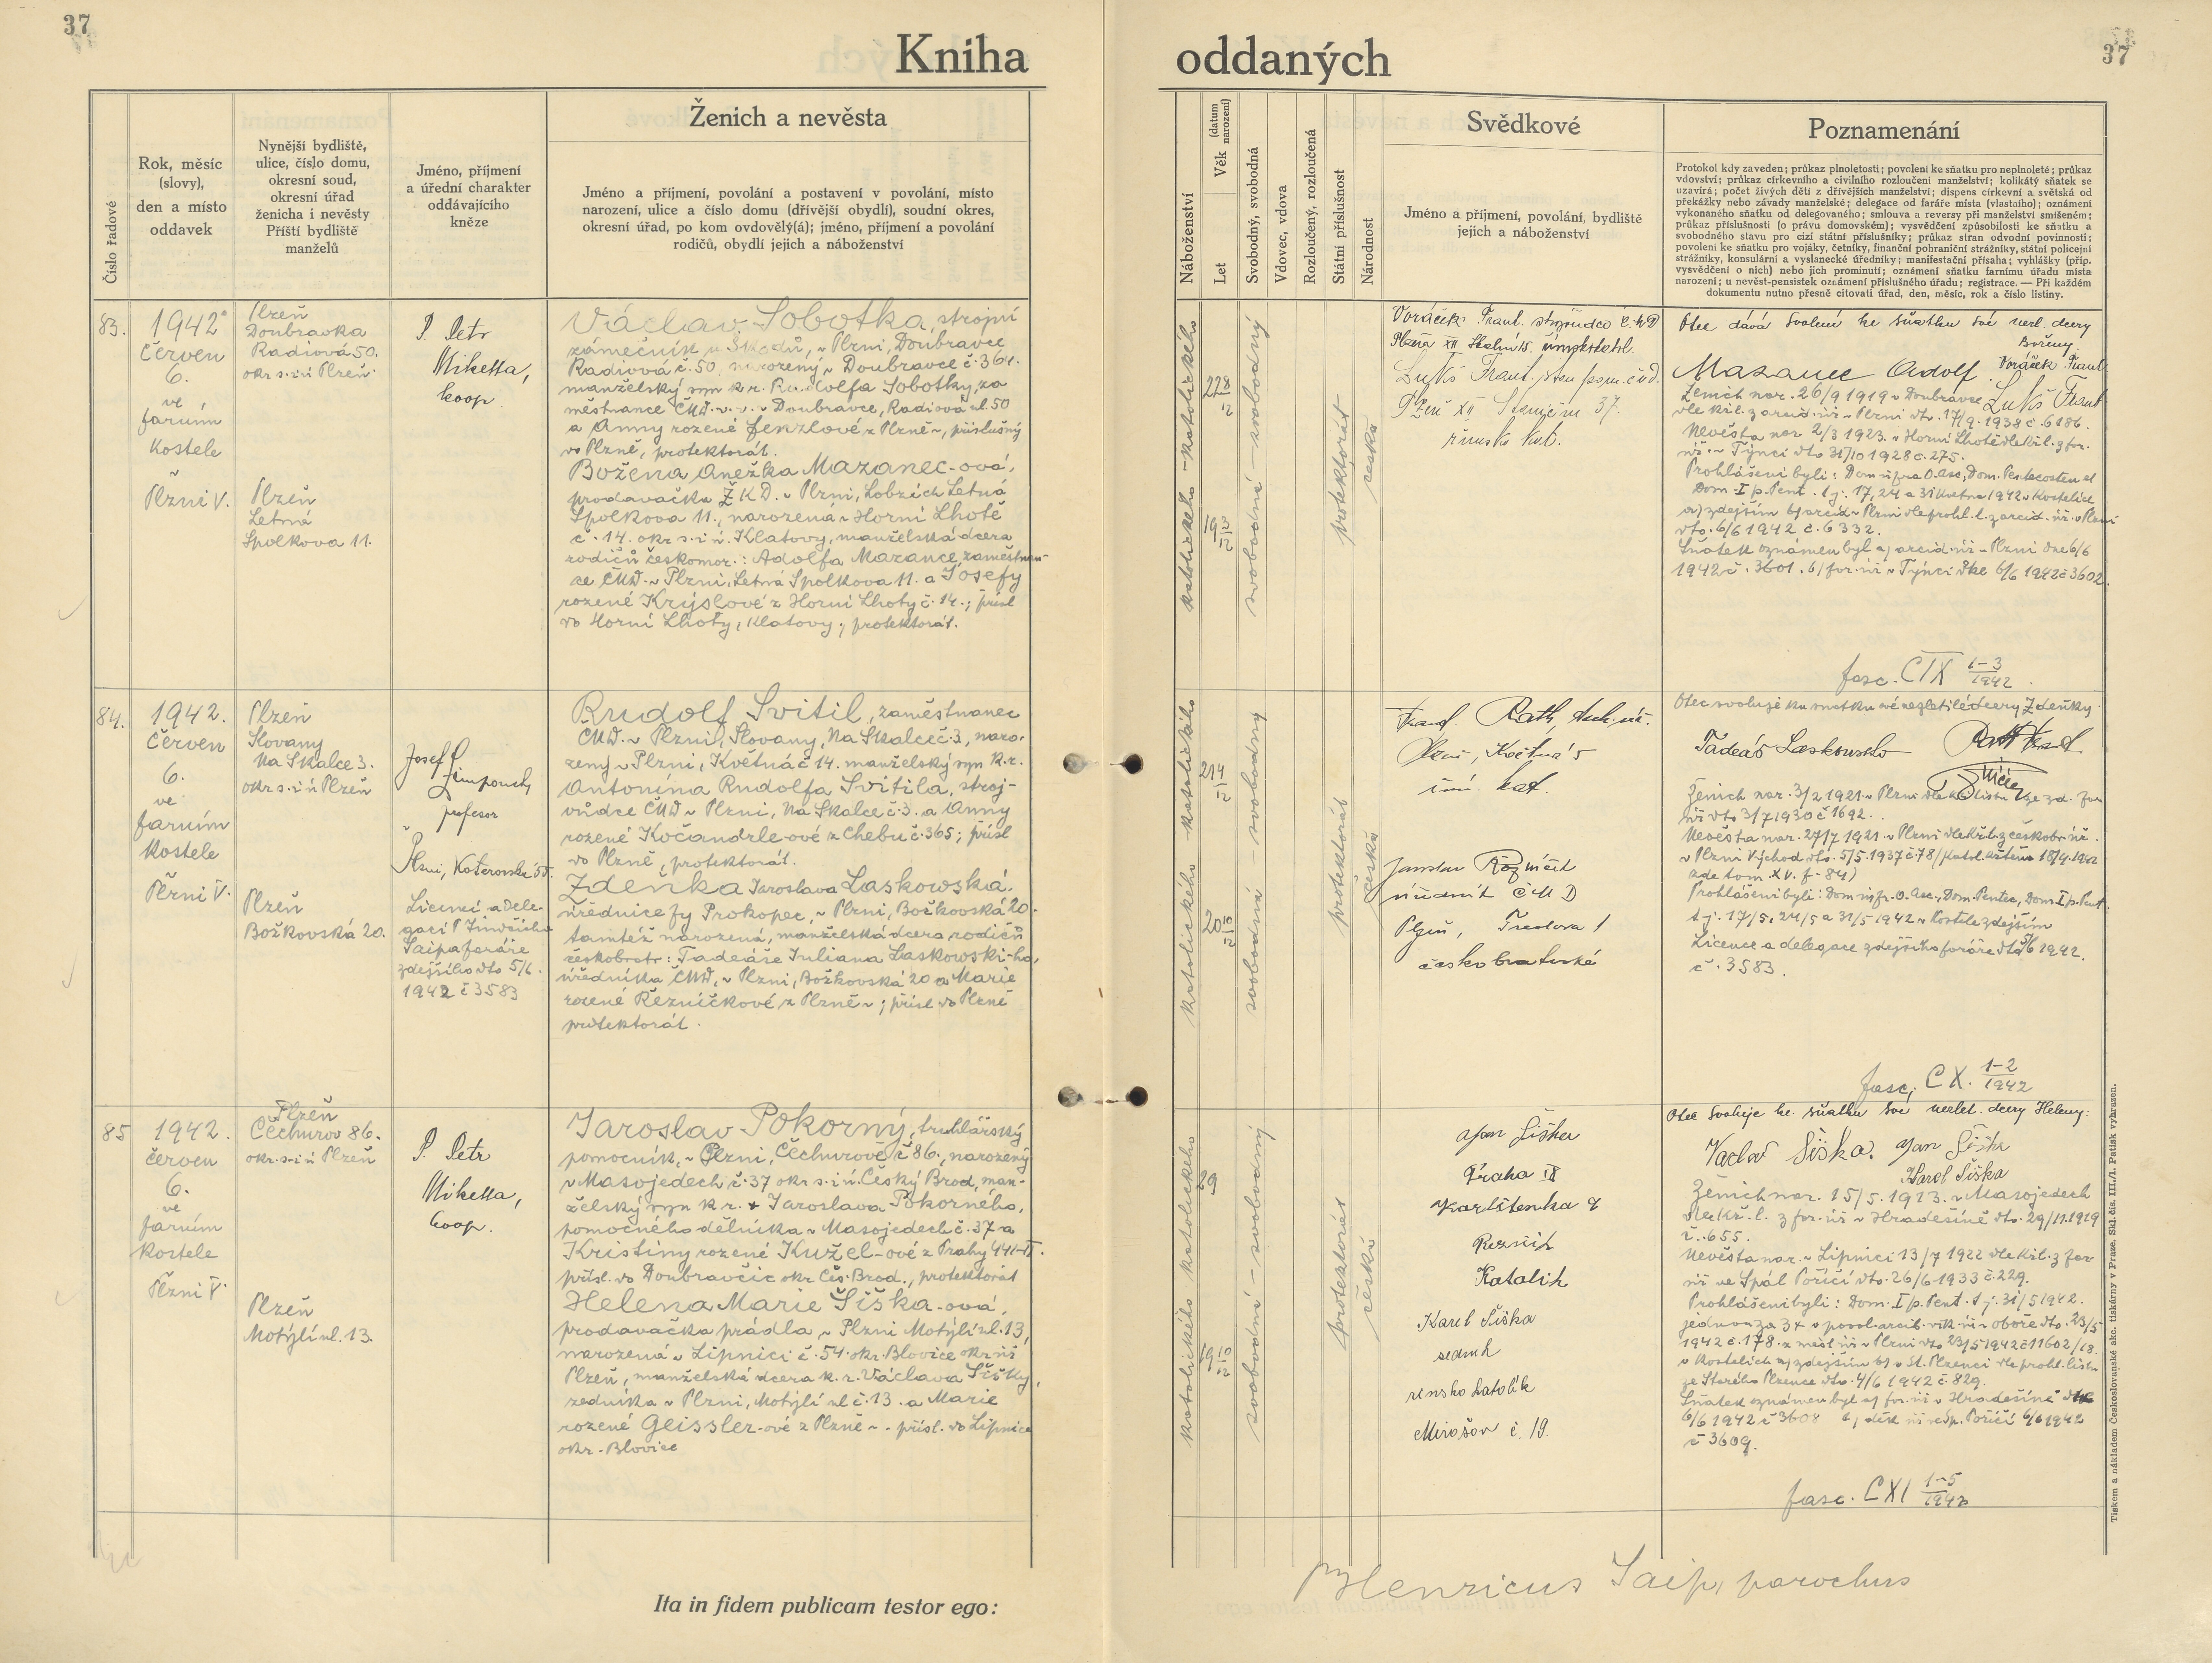 37
Kniha
Číslo řadové
Rok, měsíc
(slovy),
den a místo
oddavek
Nynější bydliště,
ulice, číslo domu,
okresní soud,
okresní úřad
ženicha i nevěsty
Příští bydliště
manželů
Jméno, příjmení
a úřední charakter
oddávajícího
kněze
Ženich a nevěsta
Jméno a příjmení, povolání a postavení v povolání, místo
narození, ulice a číslo domu (dřívější obydlí), soudní okres,
okresní úřad, po kom ovdověly(á); jméno, příjmení a povolání
rodičů, obydlí jejich a náboženství
83.
1942
Červen
6.
ve
farním
kostele
Plzni V.
Plzeň
Doubravka
Radiová 50.
okr s. i ú Plzeň
Plzeň
Letná
Spolkova 11.
P. Petr
Miketta,
koop.
Václav Sobotka, strojní
zámečník u Škodů, v Plzni, Doubravce
Radiová č. 50, narozený v Doubravce č. 364.
manželský syn k. r. Rudolfa Sobotky, za
městnance ČMD. v. v. v Doubravce, Radiová ul. 50
a Anny rozené Fenzlové z Plzně, příslušný
do Plzně, protektorát.
Božena Anežka Mazanec-ová,
prodavačka Ž K D. v Plzni, Lobzích Letná
Spolkova 11., narozená v Horní Lhotě
č. 14. okr s. i ú. Klatovy, manželská dcera
rodičů českomor.: Adolfa Mazance, zaměstnan-
ce ČMD. v Plzni, Letná Spolkova 11. a Josefy
rozené Krýslové z Horní Lhoty č. 14.; přísl
do Horní Lhoty, Klatovy, protektorát.
84.
1942.
Červen
6.
ve
farním
kostele
Plzni V.
Plzeň
Slovany
Na Skalce 3.
okr s. i ú Plzeň
Plzeň
Božkovská 20.
Josef
profesor
Plzni, Koterovská
Licencí a dele-
gací P. Jindřicha
Saipa faráře
zdejšího dto 5/6.
1942 č 3583
Rudolf Svitil, zaměstnanec
ČMD. v Plzni, Slovany, Na Skalce č. 3, naro-
zený v Plzni, Květná č 14. manželský syn k. r.
Antonína Rudolfa Svitila, stroj-
vůdce ČMD v Plzni, Na Skalce č. 3. a Anny
rozené Kočandrle-ové z Chebu č. 365; přísl
do Plzně, protektorát.
Zdeňka Jaroslava Laskowská,
úřednice fy Prokopec, v Plzni, Božkovská 20.
tamtéž narozená, manželská dcera rodičů
českobratr: Tadeáše Juliana Laskowski-ho,
úředníka ČMD, v Plzni, Božkovská 20 a Marie
rozené Řezníčkové z Plzně; přísl do Plzně
protektorát.
85
1942.
červen
6.
ve
farním
kostele
Plzni V.
Plzeň
Čechurov 86.
okr. s. i ú Plzeň
Plzeň
Motýlí ul. 13.
P. Petr
Miketta,
koop.
Jaroslav Pokorný, truhlářský
pomocník, v Plzni, Čechurově č 86., narozený
v Masojedech č. 37 okr s. i ú. Český Brod, man-
želský syn k. r. + Jaroslava Pokorného,
pomocného dělníka v Masojedech č. 37 a
Kristiny rozené Kužel-ové z Prahy
přísl. do Doubravčic okr Čes. Brod., protektorát
Helena Marie Šiška-ová,
prodavačka prádla v Plzni Motýlí ul. 13,
narozená v Lipnici č. 54. okr. Blovice okr úř
Plzeň, manželská dcera k. r. Václava Šišky,
zedníka v Plzni, Motýlí ul č. 13. a Marie
rozené Geissler-ové z Plzně. přísl. do Lipnice
okr. Blovice
Ita in fidem publicam testor ego:
37
oddaných
Náboženství
Let
Věk (datum narození)
Svobodný, svobodná
Vdovec, vdova
Rozloučený, rozloučená
Státní příslušnost
Národnost
Svědkové
Jméno a příjmení, povolání, bydliště
jejich a náboženství
Poznamenání
Protokol kdy zaveden; průkaz plnoletosti; povolení ke sňatku pro neplnoleté; průkaz
vdovství; průkaz církevního a civilního rozloučení manželství; kolikátý sňatek se
uzavírá; počet živých dětí z dřívějších manželství; dispens církevní a světská od
překážky nebo závady manželské; delegace od faráře místa (vlastního); oznámení
vykonaného sňatku od delegovaného; smlouva a reversy při manželství smíšeném;
průkaz příslušnosti (o právu domovském); vysvědčení způsobilosti ke sňatku a
svobodného stavu pro cizí státní příslušníky; průkaz stran odvodní povinnosti;
povolení ke sňatku pro vojáky, četníky, finanční pohraniční strážníky, státní policejní
strážníky, konsulární a vyslanecké úředníky; manifestační přísaha; vyhlášky (příp.
vysvědčení o nich) nebo jich prominutí; oznámení sňatku farnímu úřadu místa
narození; u nevěst-pensistek oznámení příslušného úřadu; registrace. — Při každém
dokumentu nutno přesně citovati úřad, den, měsíc, rok a číslo listiny.
katolického - katolického
22 8/12
19 3/12
svobodná - svobodný
protektorát
česká
Voráček Frant.
Plzeň XII
Lukš Frant.
Plzeň XII 37.
římsko kat.
Otec dává svolení ke sňatku své nezl. dcery
Boženy.
Mazanec Adolf. Voráček Frant
Lukš Frant
Ženich nar. 26/9 1919 v Doubravce
dle kř. l. z arcid. úř. v Plzni dto. 17/9. 1938 č. 6186.
Nevěsta nar 2/3 1923. v Horní Lhotě dle kř. l. z far.
úř. v Týnci dto 31/10 1928 č. 275.
Prohlášeni byli: Dom infra O. Asc, Dom. Pentecosten et
Dom. I p. Pent. t. j. 17, 24 a 31 května 1942 v kostelích
a) zdejším b) arcid v Plzni dle prohl. l. z arcid. úř. v Plzni
dto. 6/6 1942 č. 6332.
Sňatek oznámen byl a) arcid. úř. v Plzni dne 6/6
1942 č. 3601. b) far. úř v Týnci dne 6/6 1942 č 3602.
fasc. CIX 1-3/1942.
katolického - katolického
21 4/12
20 10/12
svobodná - svobodný
protektorát
česká
Frant. Rath,
Plzni, Květná 5
řím. kat.
Jaroslav
úředník ČMD
Plzeň, 1
českobratrské
Otec svoluje ku sňatku své nezletilé dcery Zdeňky
Tadeáš Laskowski Rath Frant.
Ženich nar. 3/2 1921 v Plzni dle kř. listu
úř. dto 3/7 1930 č 1692.
Nevěsta nar. 27/7 1921 v Plzni dle kř. l. z českobr. úř.
v Plzni Východ dto. 5/5. 1937 č. 78 /katol. křtěna 18/4. 1942
zde tom. XV. f. 84)
Prohlášeni byli: Dom inf. O. Asc., Dom. Pentec, Dom. I p. Pent.
t. j. 17/5, 24/5 a 31/5 1942 v kostele zdejším
Licence a delegace zdejšího faráře dto 5/6 1942.
č. 3583.
fasc. CX. 1-2/1942
katolického katolického
29
19 10/12
svobodná - svobodný
protektorát
česká
Jan Šiška
Praha II
Karlštenka 4
Řezník
Katolík
Karel Šiška
sedmk
rensko katolík
Mirošov č. 19.
Otec svoluje ke sňatku své nezlet. dcery Heleny:
Václav Šiška. Jan Šiška
Karel Šiška
Ženich nar. 15/5. 1913. v Masojedech
dle kř. l. z far. úř v Hradešíně dto. 29/11. 1919
č. 655.
Nevěsta nar. v Lipnici 13/7 1922 dle kř. l. z far
úř ve Spál Poříčí dto. 26/6 1933 č. 229.
Prohlášeni byli: Dom. I p. Pent. t. j. 31/5 1942.
jednou za 3x s povol. arcib. vik. úř v oboře dto. 23/5
1942 č. 178. z měst. úř v Plzni dto 23/5 1942 č 11602/18.
v kostelích a) zdejším b) v St. Plzenci dle prohl. listu
ze Starého Plzence dto. 4/6 1942 č. 829.
Sňatek oznámen byl a) far. úř v Hradešíně dto
6/6 1942 č 3608 b) děk. úř ve Sp. Poříčí 6/6 1942
č 3609.
fasc. CXI 1-5/1942
Henricus Saip, parochus
Tiskem a nákladem Českoslovanské akc. tiskárny v Praze. Skl. čís. III./1. Patisk vyhrazen.